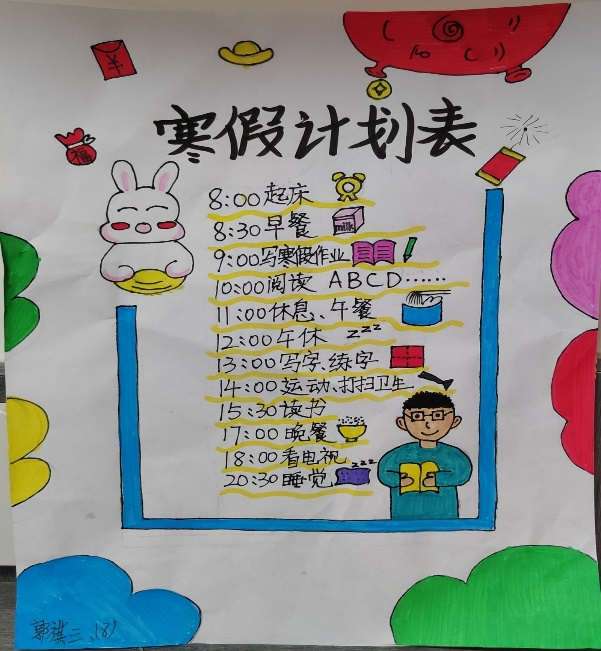 ¥
福
寒假计划表
8:00起床
8:30早餐
milk
9:00写寒假作业
10:00阅读 ABCD……
11:00休息、午餐
12:00午休 zzz
13:00写字、练字
14:00运动、打扫卫生
15:30读书
17:00晚餐
18:00看电视
20:30睡觉 zzz
郭祺三、(8)